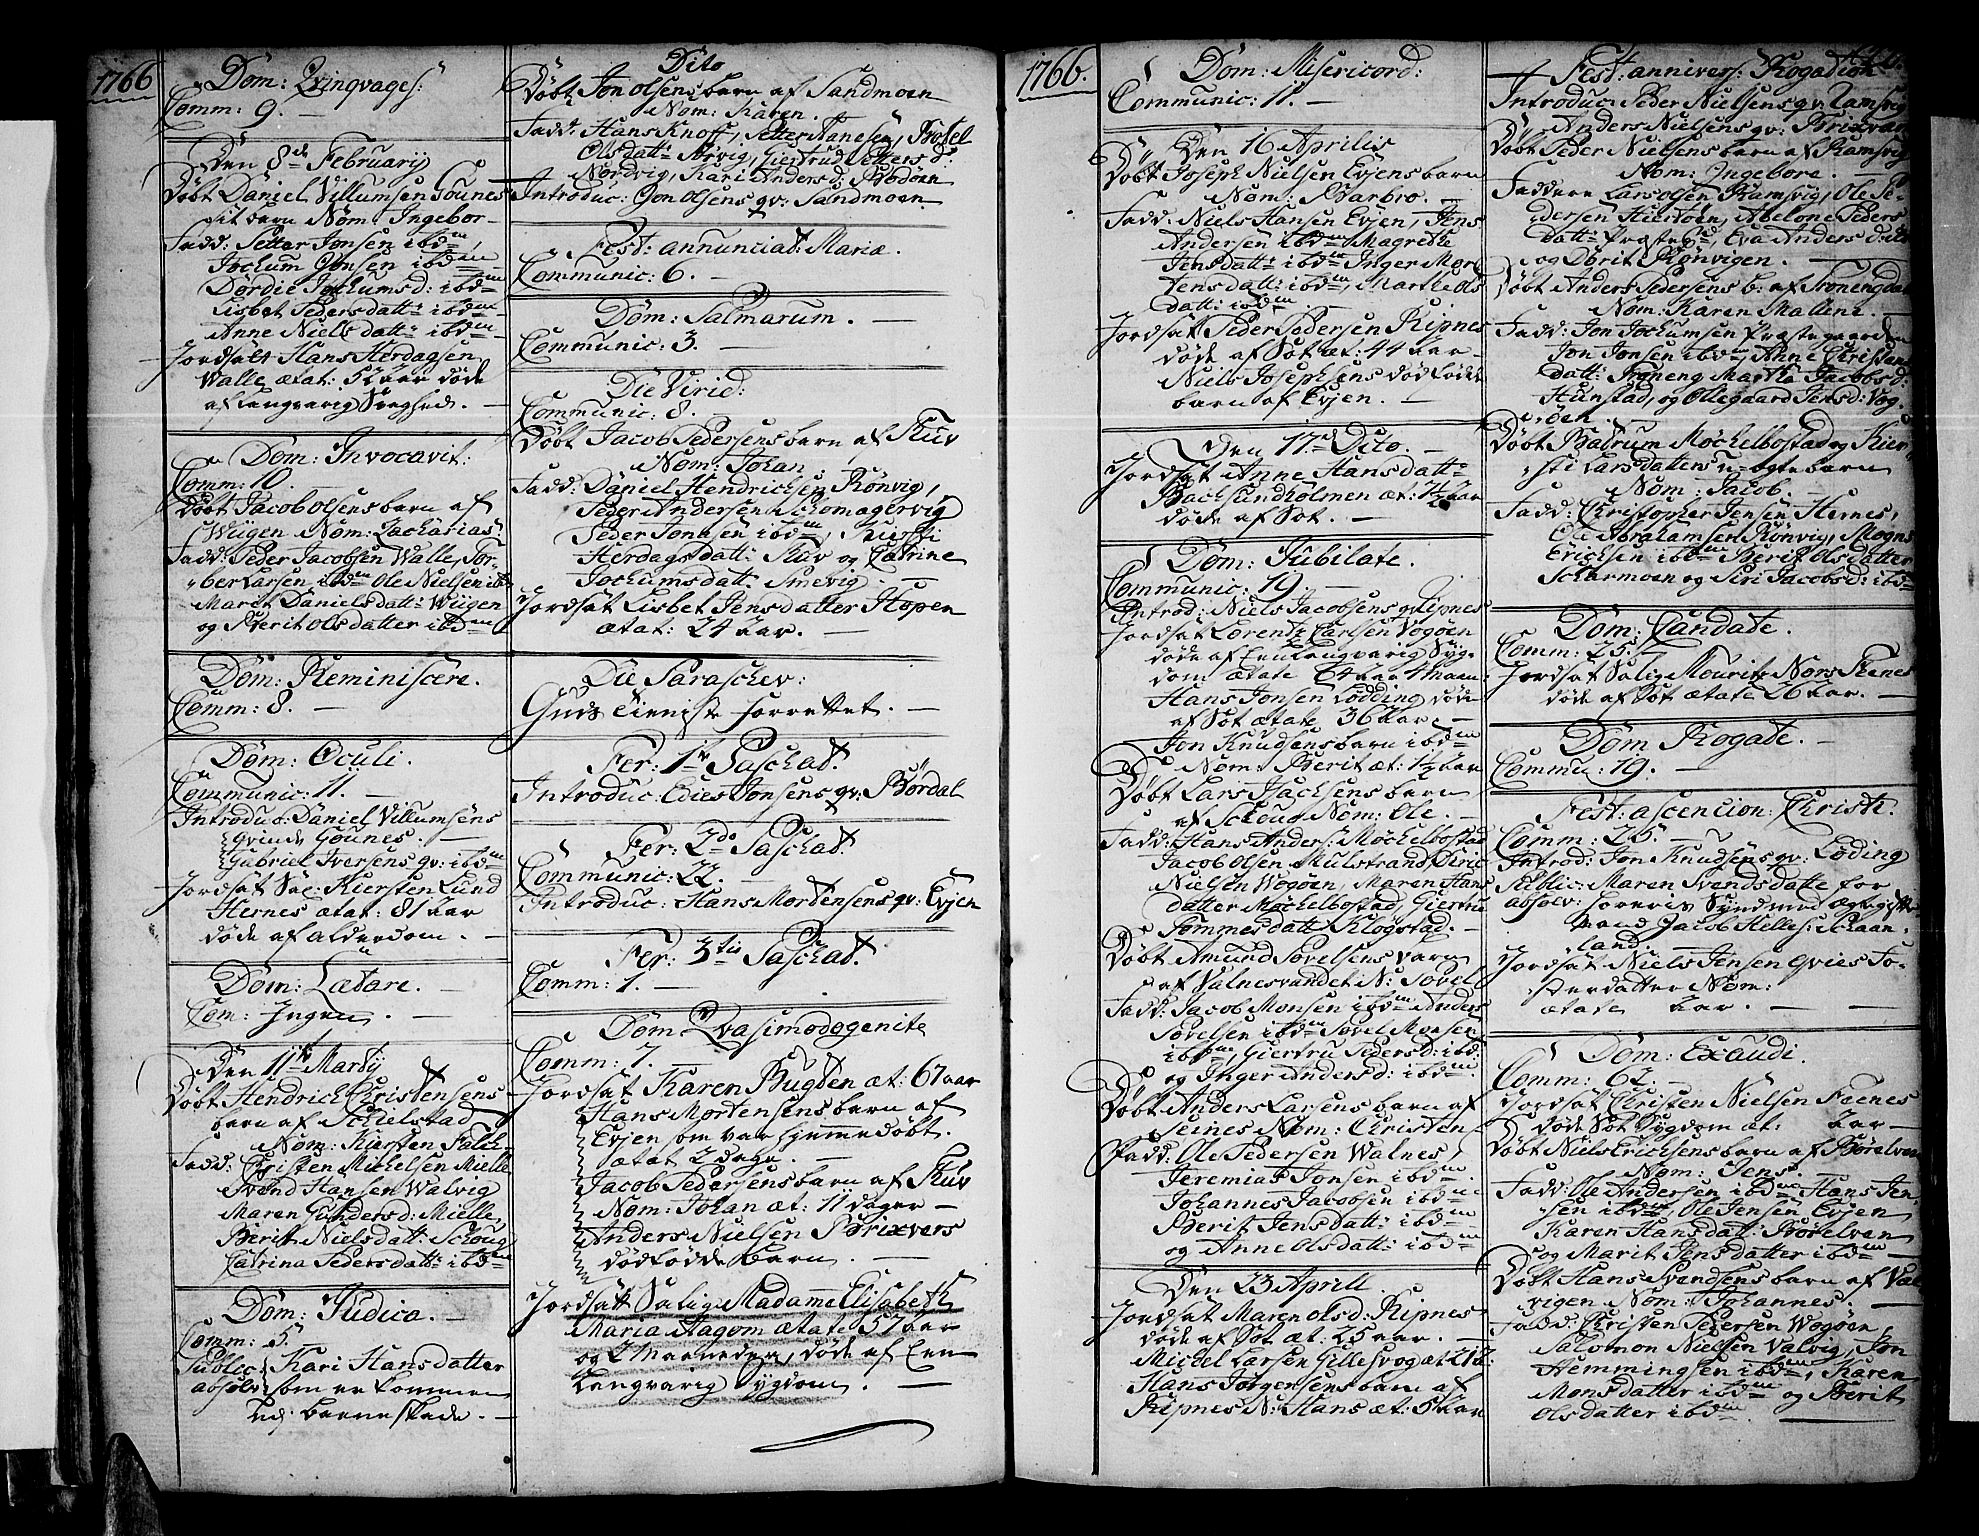 1766
Dom: Qvinqvages:
Comm: 9. —
Den 8de February
Døbt Daniel Villumsen Gounes
sit barn Nom: Ingebor
Fadd: Petter Jonsen ibdm,
Jochum Jonsen ibdm
Dordie Jochumsd: ibdm
Lisbet Pedersdatt: ibdm
Anne Nielsdatt: ibdm
Jordsatt Hans Herdagsen
Walle ætat: 52 aar døde
af langvarig Svaghed. —
Dom: Invocavit:
Comm: 10. —
Døbt Jacob Olsens barn af
Wiigen Nom: Zacharias
Fadd: Peder Jacobsen Walle, Tor-
ber Larsen ibdm Ole Nielsen ibd
Marit Danielsdatt: Wiigen
og Berit Olsdatter ibdm
Dom: Reminiscere.
Comm: 8. —
Dom: Oculi.
Communic: 11. —
Introduc: Daniel Villumsens
qvinde Gounes. —
Gabriel Iversens qv: ibdm
Jordsat Sal: Kiersten Lund
Hernes ætat: 81 aar
døde af alderdom. —
Dom: Lætare. —
Com: Ingen. —
Den 11te Marty
Døbt Hendrich Christensens
barn af Schielstad
Nom: Kiersten Falch
Fadd: Christen Michelsen Mielle
Svend Hansen Walvig
Maren Gundersd: Mielle,
Berit Nielsdatt: Schoug
Catrina Pedersdatt: ibdm
Dom: Judica. —
Comm: 5.
Public: Kari Hansdatter
absolv: som er kommen
ud: barneskade. —
Dito
Døbt Jon Olsens barn af Sandmoen
Nom: Karen.
Fadd: Hans Knoff, Petter Hanesen,
Olsdatt: Nørvig, Giertrud Pettersd:
Nordvig, Kari Andersd: Bodøen
Introduc: Jon Olsens qv: Sandmoen
Fest: annunciat: Mariæ.
Communic: 6. —
Dom: Palmarum. —
Communic: 3. —
Die Virid:
Communic: 8. —
Døbt Jacob Pedersens barn af Skiv
Nom: Johan
Fadd: Daniel Hendrichsen Rønvig,
Peder Andersen Schomagervig
Peder Jonasen ibdm,
Herdagsdatt: Skiv og Catrine
Jochumsdatt: Smevig. —
Jordsat Lisbet Jensdatter Hopen
ætat: 24 aar. —
Die Paraschev:
Guds tieniste forrettet. —
Fer: 1te Paschat:
Introduc: Edies Jonsens qv: Bordal
Fer: 2do Paschat.
Communic: 22. —
Introduc: Hans Mortensens qv: Evjen
Fer: 3tia Paschat.
Comm: 1. —
Dom: Qvasimodogenite
Comm: 7. —
Jordsat Karen Bugden æt: 67 aar
Hans Mortensens barn af
Evjen som var hjemmedøbt.
ætat 2 dage. —
Jacob Pedersens barn af Skiv
Nom: Johan æt: 11 dager —
Anders Nielsen Brixvers
dødfødde barn. —
Jordsatt Salig Madame Elisabeth
Maria Hagom ætate 57 aar
og 2 Maaneder, døde af Een
Langvarig Sygdom. —
1766.
Dom: Misericord:
Communic: 11. —
Den 16 Aprilis
Døbt Joseph Nielsen Evjens barn
Nom: Barbro. —
Fadd: Niels Hansen Evjen, Jens
Andersen ibdm Magrethe
Jensdatt: ibdm Inger Mor-
tensdatt: ibdm, Marthe Ols
datt: ibdm. —
Jordsat Peder Pedersen Ripnes
døde af Sot æt: 44 aar —
Niels Josephsens dødfødde
barn af Evjen. —
Den 17de Dito. —
Jordsat Anne Hansdatt:
Bachsundholmen æt: 1½ aar
døde af Sot. —
Dom: Jubilate.
Communic: 19. —
Introd: Niels Jacobsens qv: Ripnes
Jordsat Lorentz Carlsen Vogøen
døde af Een Langvarig Syg-
dom ætate 64 aar 4 maan:
Hans Jonsen Lodding døde
af Sot ætate 36 aar. —
Jon Knudsens barn ibdm
Nom: Berit æt: 1½ aar
Døbt Lars Isachsens barn
af Schoug Nom: Ole. —
Fadd: Hans Anders: Møchelbostad
Jacob Olsen Mulstrand, Siric
Nielsen Wogøen, Maren Hans
datter Møchelbostad, Giertru
Tommesdatt: Klogstad. —
Døbt Amund Povelsens barn
af Valnesvandet N: Povel
Fadd: Jacob Monsen ibdm Anders
Povelsen ibdm Povel Monsen
ibdm, Giertru Pedersd: ibd:
og Inger Andersd: ibdm.
Døbt Anders Larsens barn af
Seines Nom: Christen
Fadd: Ole Pedersen Walnes,
Jeremias Jonsen ibdm.
Johannes Jacobsen ibdm
Berit Jensdatt: ibdm
og Anne Olsdatt: ibdm
Den 23 Aprill. —
Jordsat Maren Olsd: Ripnes
døde af Sot æt: 25 aar. —
Michel Larsen Gillesvog æt 21 a:
Hans Jørgensens barn af
Ripnes N: Hans æt: 5 aar
Fest: annivers: Rogadion
Introduc: Peder Nielsens qv: Ramsvig
Anders Nielsens qv: Brixvær
Døbt Peder Nielsens barn af Ramsvig
Nom: Ingebore. —
Faddere Lars Olsen Ramsvig, Ole Pe-
dersen Hiertøen, Abelone Peders
datt: Præstegd, Eva Andersd: dito
og Dorit Rønvigen. —
Døbt Anders Pedersens b: af Troneng
Nom: Karen Mallene. —
Fadd: Jon Jochumsen Præstegaarden
Jon Jonsen ibdm Anne Christens
datt: Troneng Martha Jacobsd:
Hunstad, og Ollegaard Jensd: Vog-
øen
Døbt Møchelbostad og Kier-
sti Larsdatters u-ægte barn
Nom: Jacob. —
Fadd: Christopher Jensen Hernes,
Ole Abrahamsen Rønvig, Mogns
Erichsen ibdm Berit Olsdatter
Scharmoen og Siri Jacobsd: ibdm
Dom: Candate.
Comm: 25. —
Jordsat Salig Mouritz Nors Feenes
døde af Sot ætate 26 aar. —
Dom Rogade. —
Commu: 19. —
Fest: ascencion: Christi.
Comm: 25. —
Introd: Jon Knudsens qv: Loding
Public: Maren Svendsdatte for
absolv: horeris Synd med ægte gifte
mand Jacob Helles: Schaan-
land. —
Jordsat Niels Jensen Fo-
sterdatter Nom:
ætate aar. —
Dom: Exaudi.
Comm: 62. —
Jordsat Christen Nielsen Feenes
døde Sot Sygdom æt: aar —
Døbt Niels Erichsens barn af Børelven
Nom: Jens.
Fadd: Ole Andersen ibdm Hans Jen-
sen ibdm, Ole Jensen Evjen
Karen Hansdatt: Børelven
og Marit Jensdatter ibdm —
Døbt Hans Svendsens barn af Val-
vigen Nom: Johannes. —
Fadd: Christen Pedersen Wogøen
Salomon Nielsen Valvig, Jon
Hemmingsen ibdm, Karen
Monsdatter ibdm og Berit
Olsdatter ibdm.